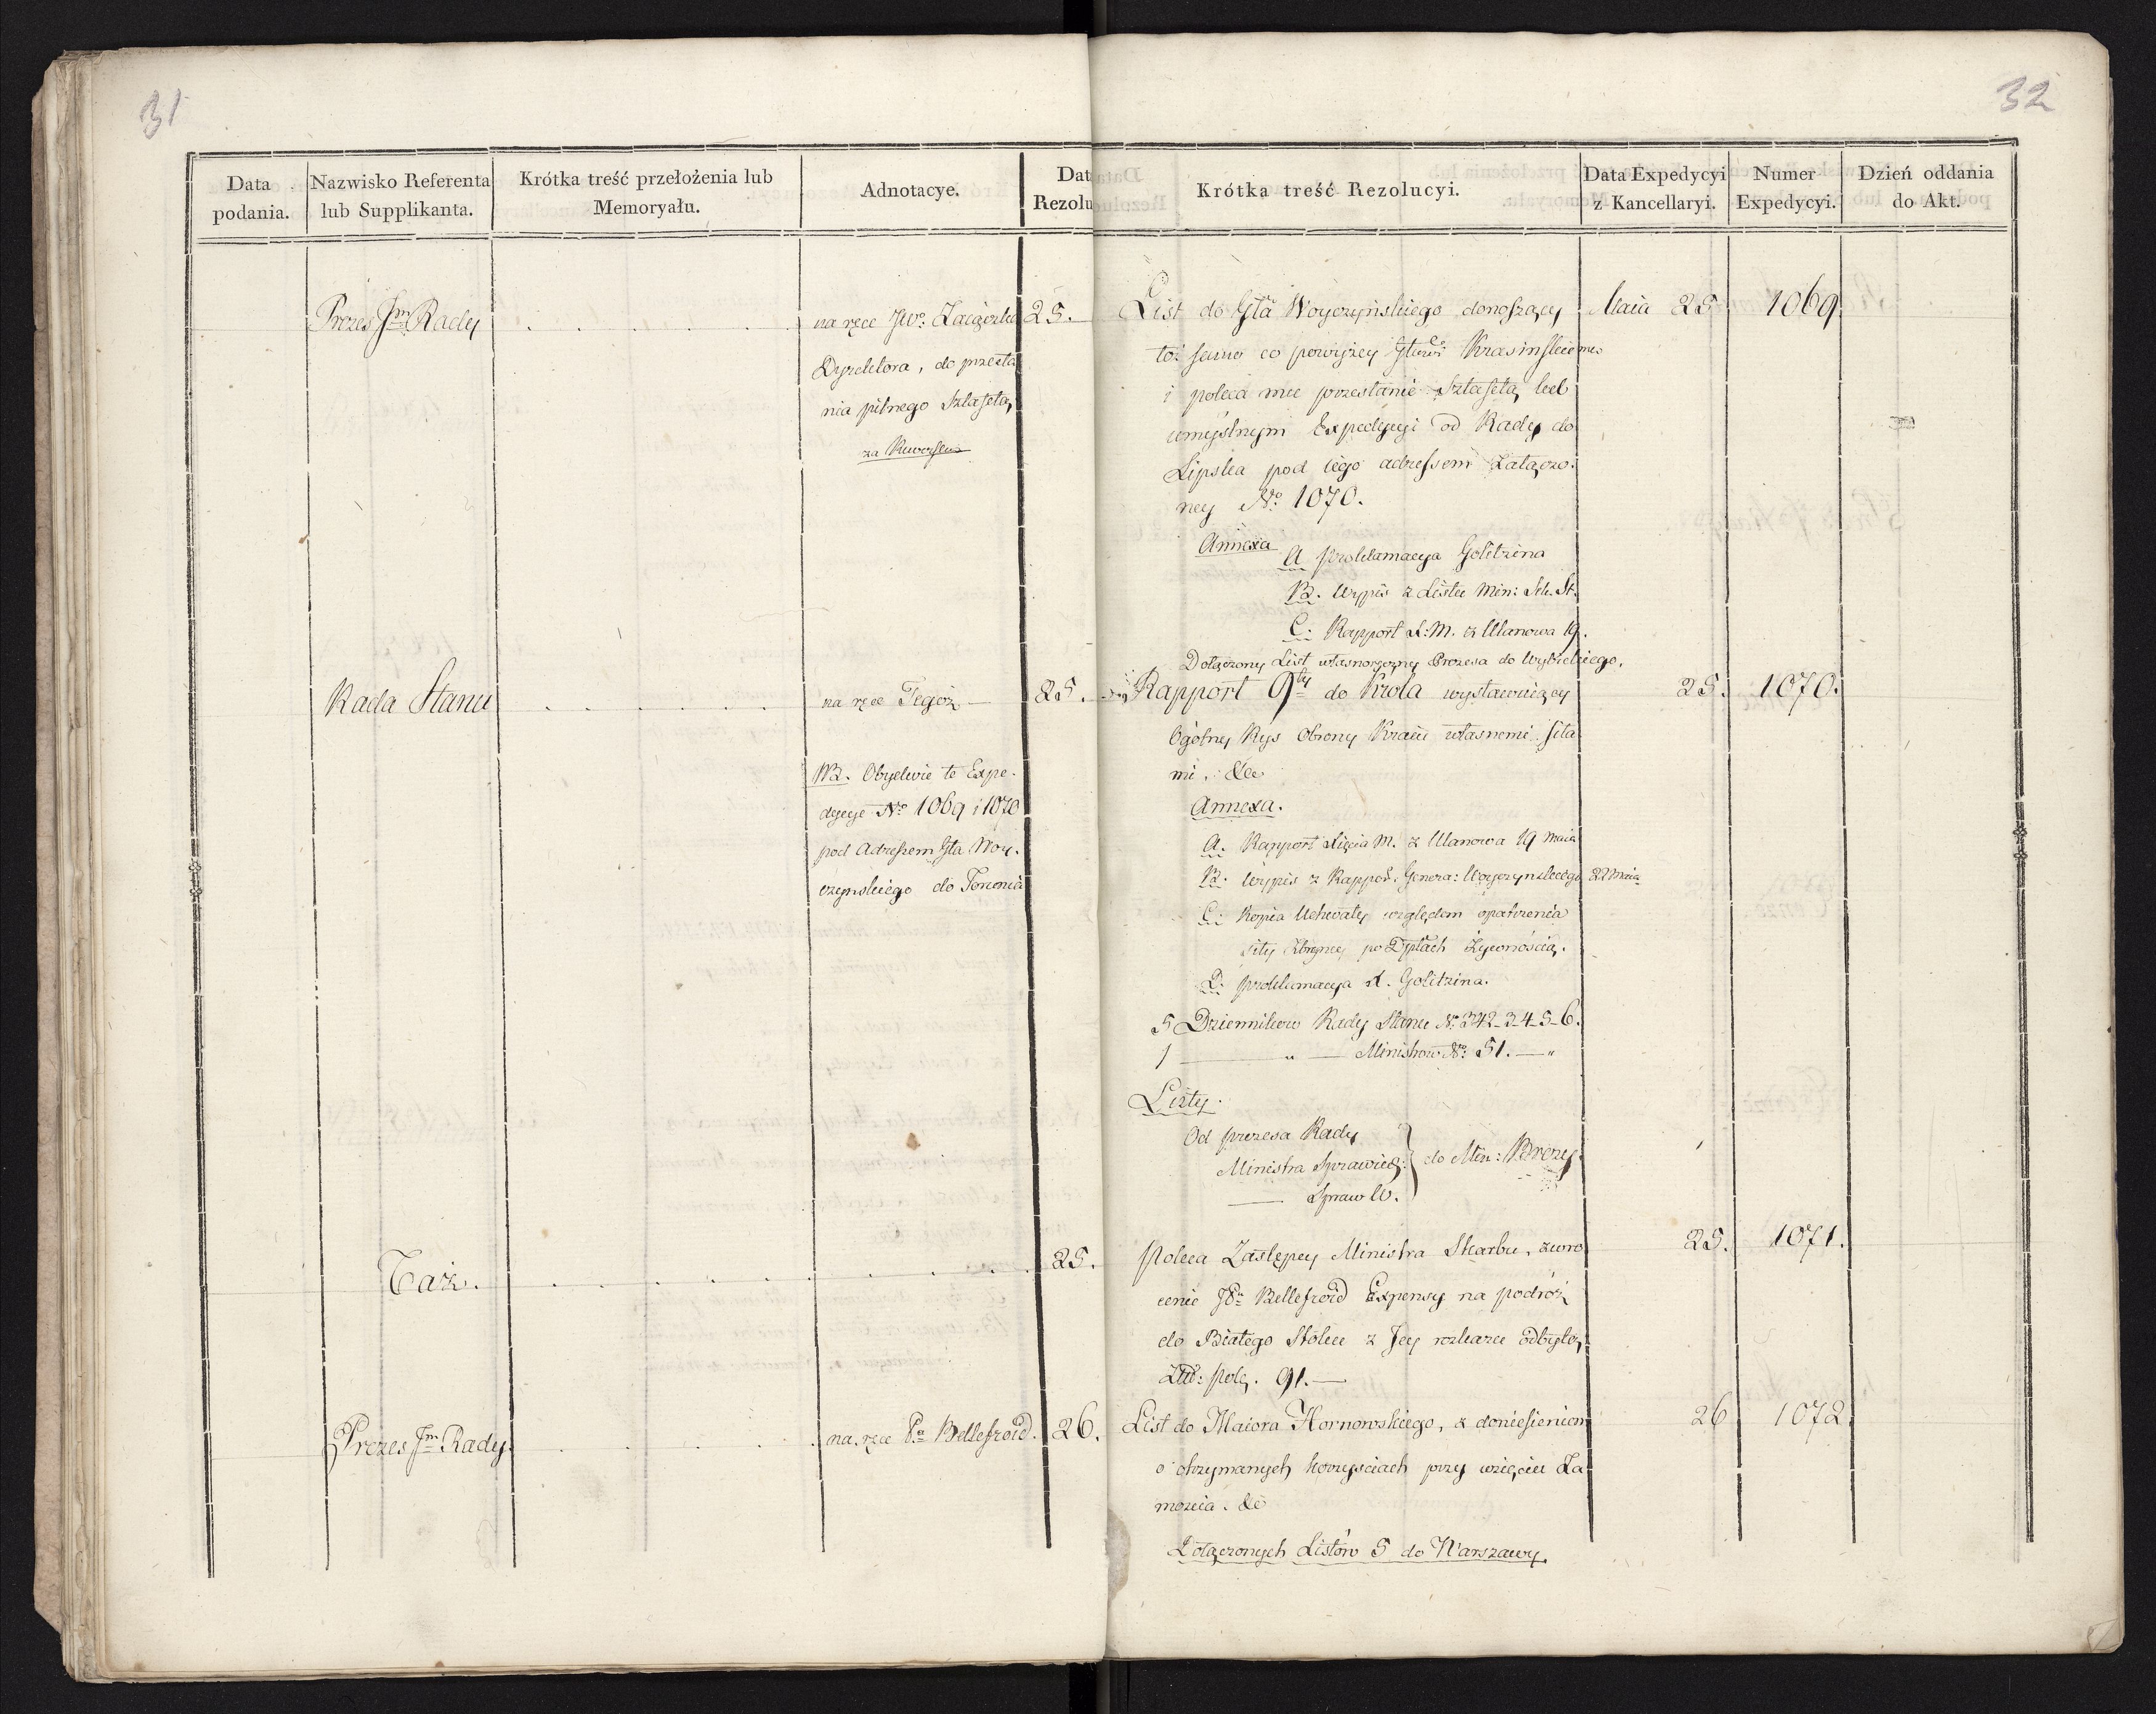 31
32
Data podania.
Nazwisko Referenta lub Supplikanta.
Krótka treść przełożenia lub Memoryału.
Adnotacye.
Dat
Rezolu
Krótka treść Rezolucyi.
Data Expedycyi z Kancellaryi.
Numer Expedycyi.
Dzień oddania do Akt.
Prezes Jm Rady
na ręce JWo Zaiączka
Dyrektora, do przesła
nia pilnego Sztafetą,
za Rewersem
25.
List do Gła Woyczyńskiego donoszący
toż samo co powyżey Głowi Krasińskiemu
i poleca mu przesłanie Sztafetą lub
umyślnym Expedycyi od Rady do
Lipska pod iego adressem załączo:
ney No 1070.
Annexa
A. Proklamacya Golitzina
B. Wypis z Listu Min: Sek. St.
C: Rapport X: M. z Ulanowa 19.
Dołączony List własnoręczny Prezesa do Wybickiego.
Maia 25
1069
Rada Stanu
na ręce Tegoż —
NB. Obydwie te Expe-
dycye No 1069 i 1070
pod Adressem Gła Woy-
czynskiego do Torunia
25.
Rapport 9ty do Króla wystawuiący
Ogólny Rys Obrony Kraiu własnemi siła
mi, &c
Annexa.
A. Rapport Xięcia M. z Ulanowa 19 Maia
B. Wypis z Rappor. Genera: Woyczynskiego 22 Maia
C: Kopia Uchwały względem opatrzenia
siły zbroyney po Dptach żywnością.
D: Proklamacya X. Golitzina.
5 Dzienników Rady Stanu No 342-3-4-5-6.
1 — " — Ministrow No: 51. — "
Listy.
Od Prezesa Rady
Ministra Sprawied:
— Spraw W.
do Min: Brezy.
25.
1070.
Taż.
25.
Poleca Zastępcy Ministra Skarbu, zwro
cenie JPu Bellefroid Expensy na podróż
do Białego Stoku z Jey rozkazu odbytą,
Złt: Pols. 91.—
25.
1071.
Prezes Jm Rady
na ręce Pa Bellefroid.
26.
List do Maiora Hornowskiego, z doniesieniem
o otrzymanych korzyściach przy wzięciu Za
mościa. &c
Dołączonych Listów 5 do Warszawy.
26
1072